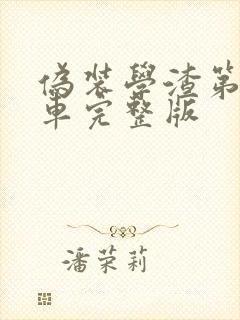 偽裝學渣第
車完整版
潘荣莉